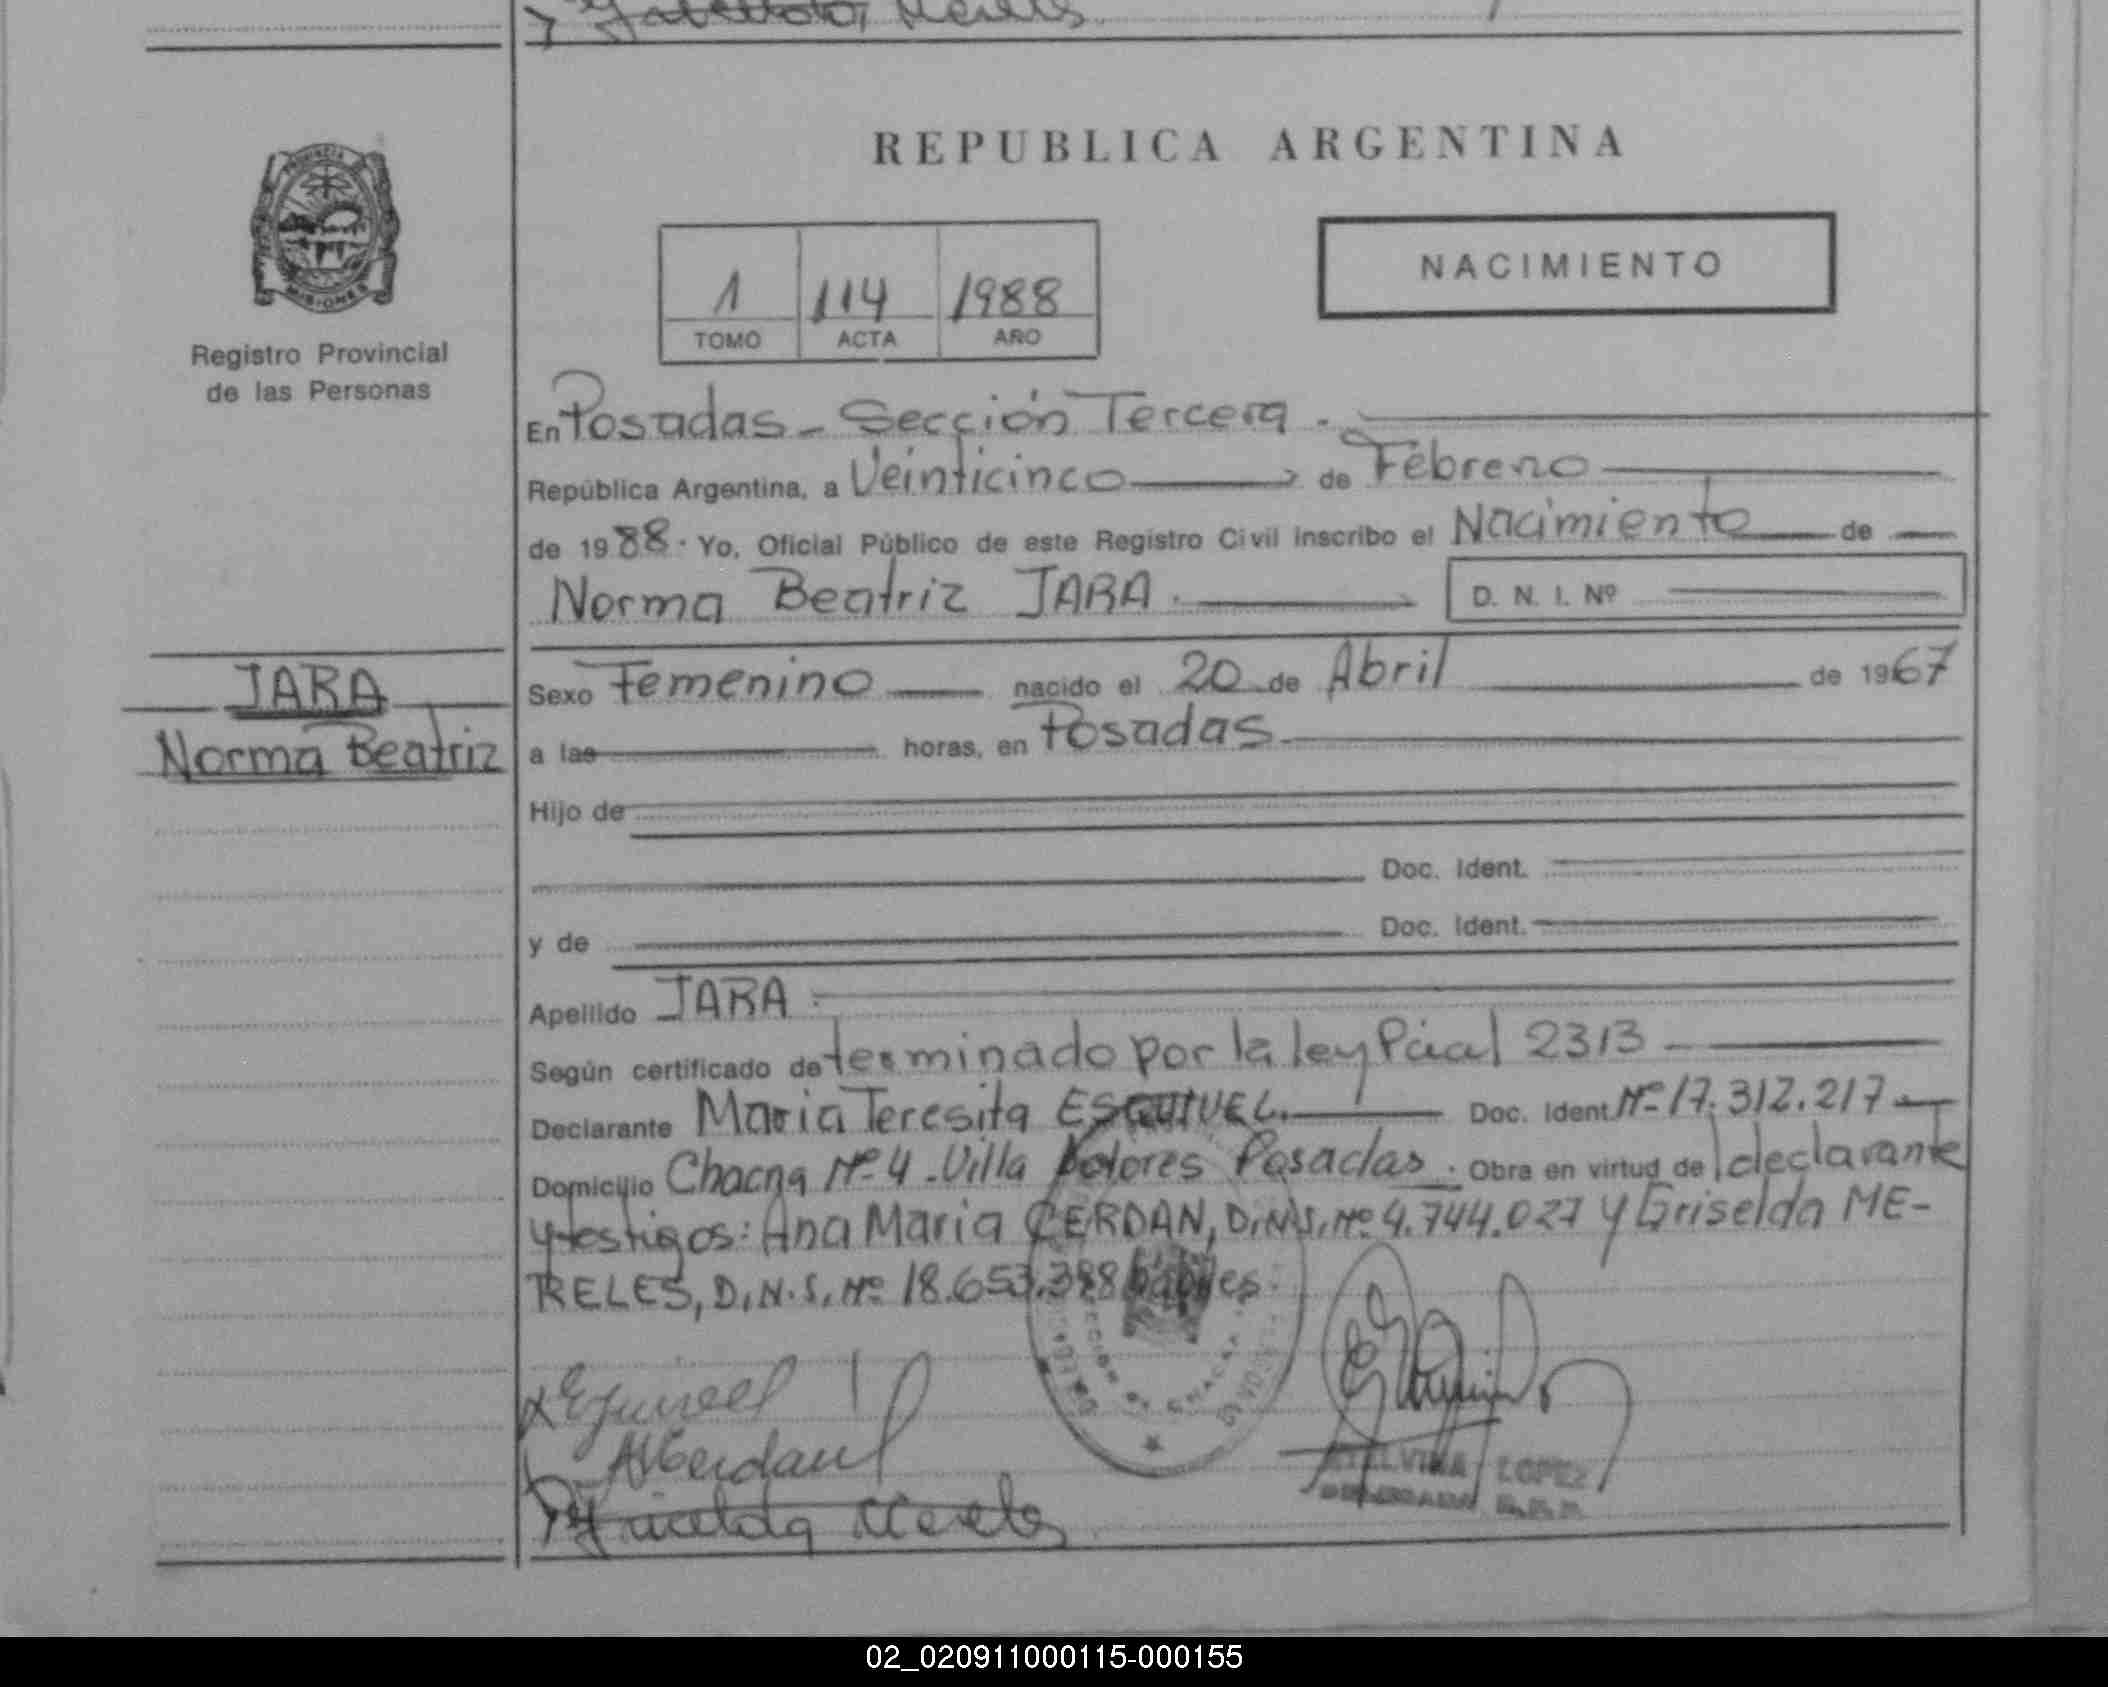 REPUBLICA ARGENTINA
PROVINCIA
MISIONES
Registro Provincial
de las Personas
1 114 1988
TOMO ACTA AÑO
NACIMIENTO
En Posadas - Sección Tercera.
República Argentina, a Veinticinco de Febrero
de 1988. Yo, Oficial Público de este Registro Civil inscribo el Nacimiento de
Norma Beatriz JARA. D. N. I. Nº
JARA
Norma Beatriz
Sexo Femenino nacido el 20 de Abril de 1967
a las horas, en Posadas
Hijo de
Doc. Ident.
y de Doc. Ident.
Apellido JARA
Según certificado determinado por la ley Pcial 2313
Declarante Maria Teresita ESQUIVEL. Doc. Ident. Nº 17.312.217
Domicilio Chacra Nº 4 - Villa Dolores Posadas. Obra en virtud de declarante
y testigos: Ana Maria CERDAN, D.N.I. Nº 4.744.027 y Griselda ME-
RELES, D.N.I. Nº 18.653.388 hábiles.
Esquivel
ACerdan
Griselda Mereles
ETELVINA LOPEZ
02_020911000115-000155